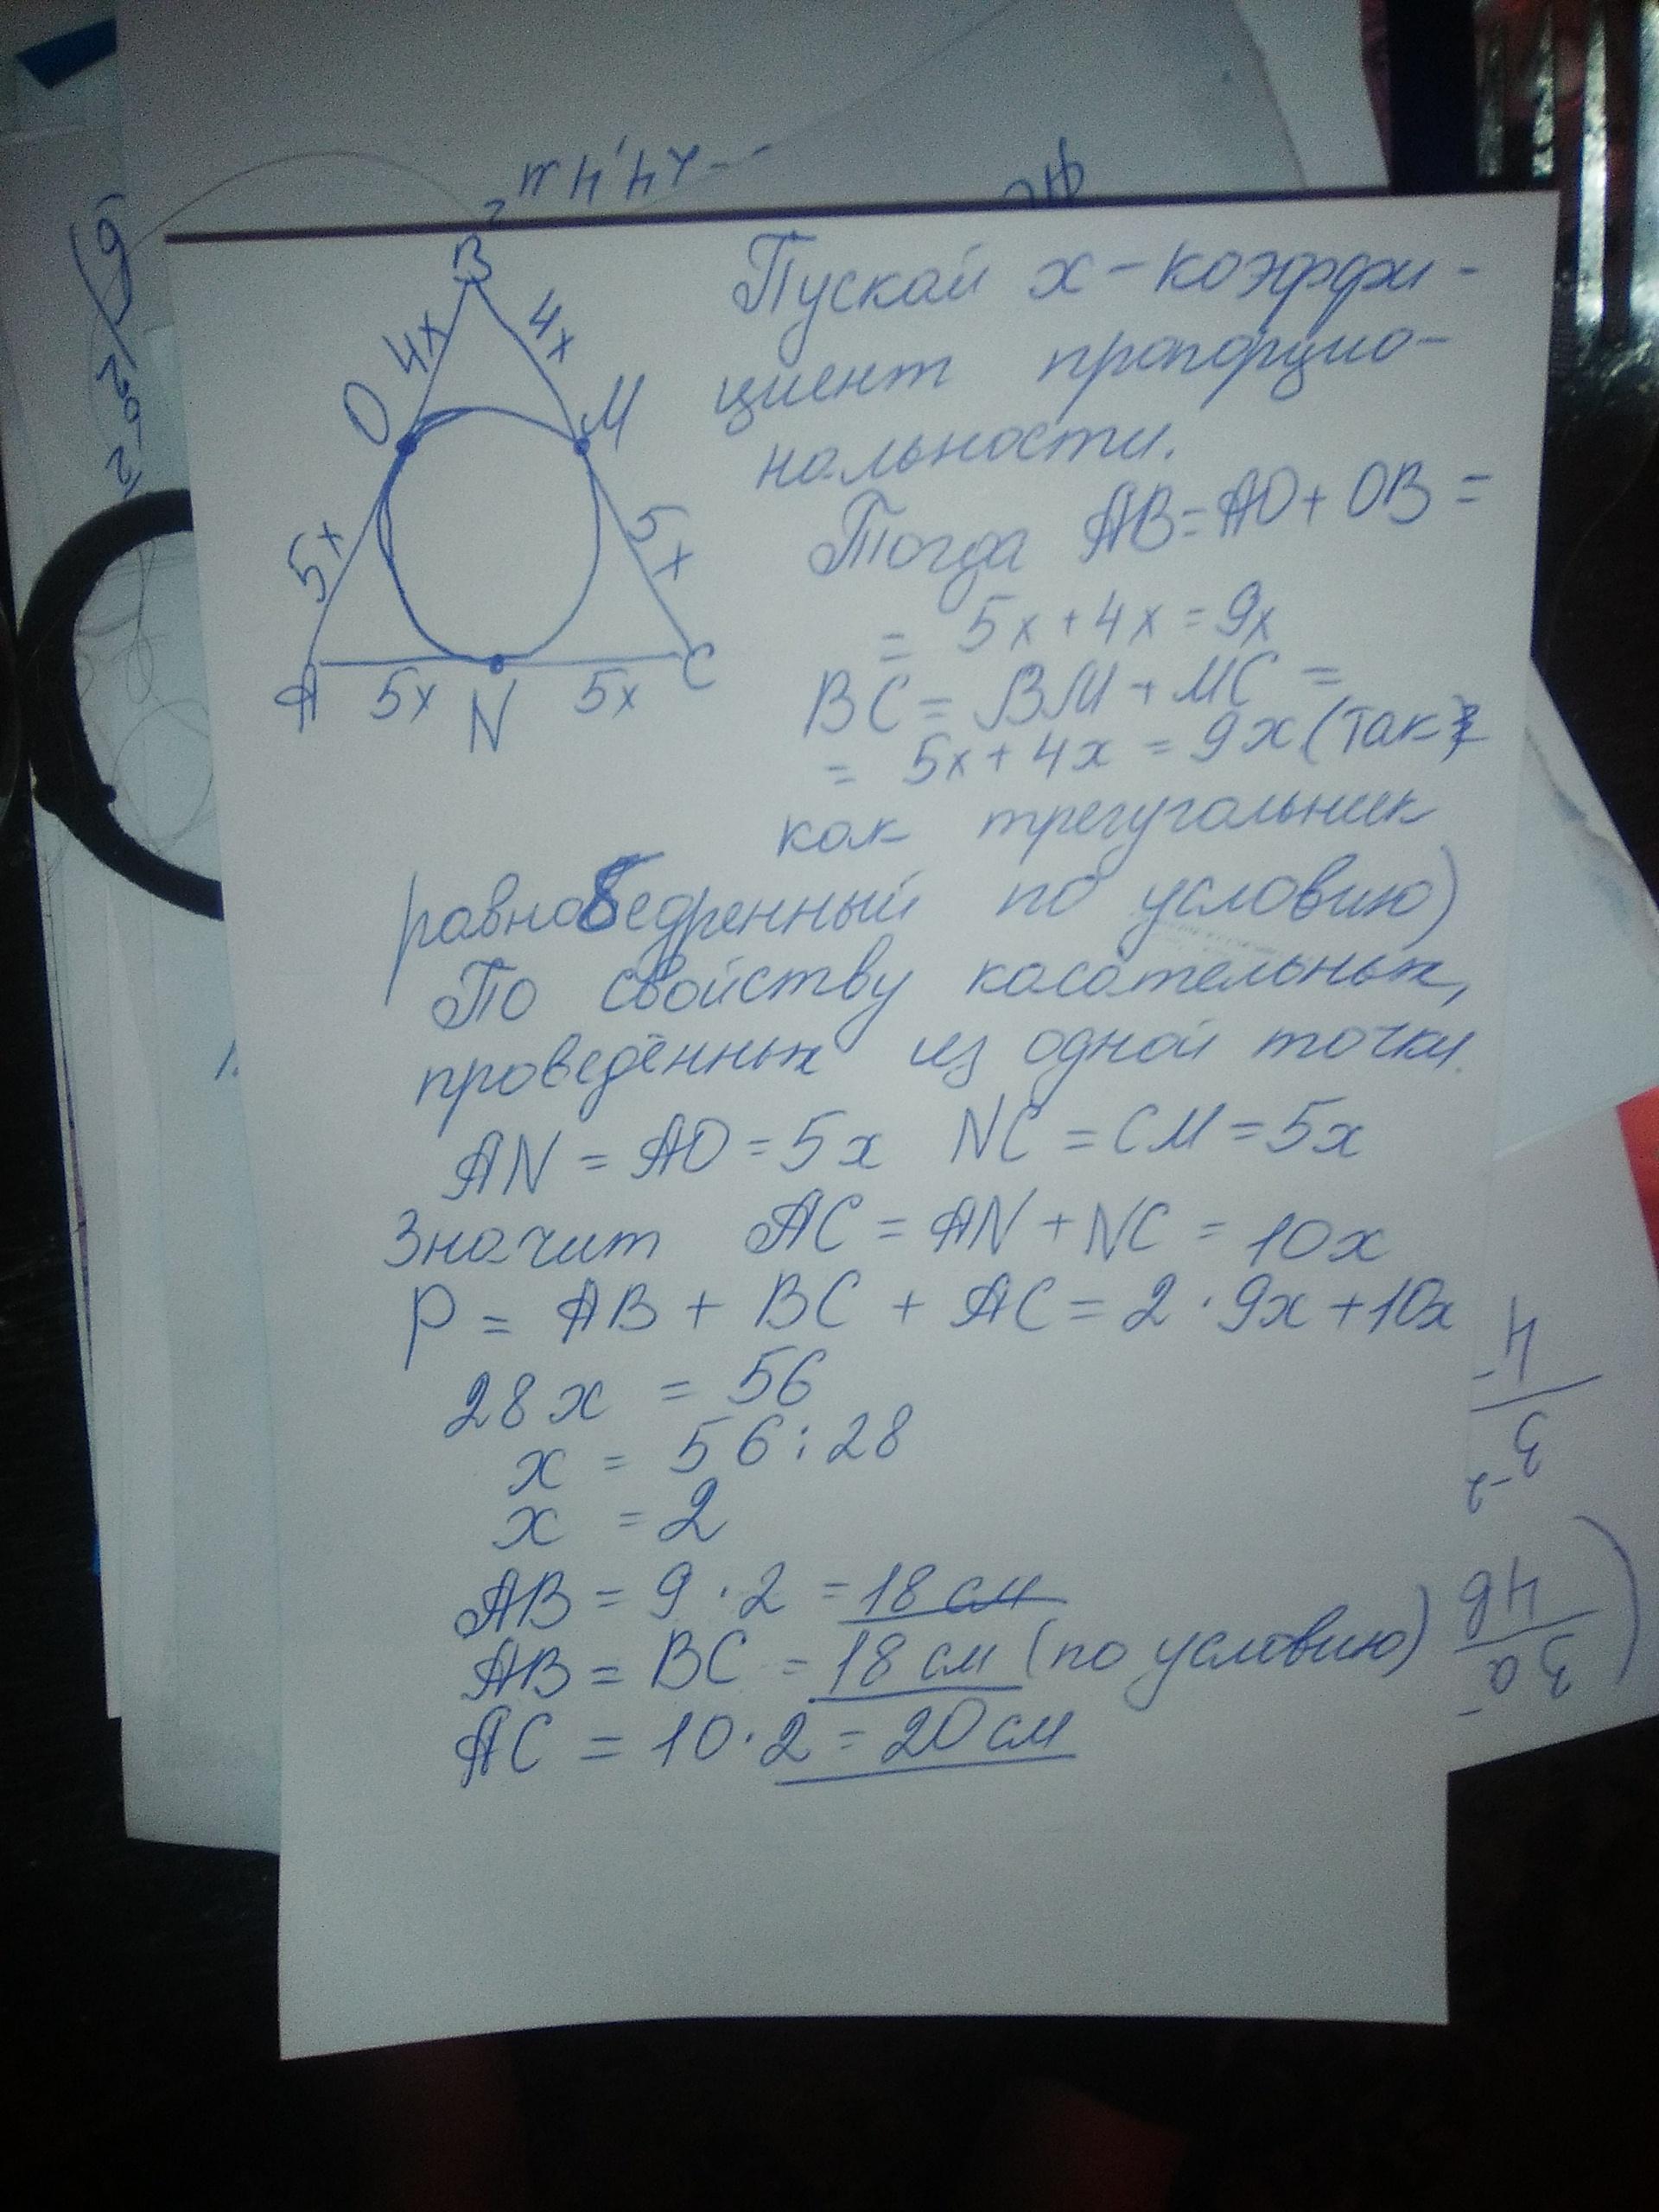 B
4x
4x
O
M
5x
5x
A
5x
N
5x
C
Пускай x-коэффи-
циент пропорцио-
нальности.
Тогда AB=AO+OB=
= 5x+4x=9x
BC=BM+MC=
= 5x+4x=9x(так
как треугольник
равнобедренный по условию)
По свойству касательных,
проведённых из одной точки.
AN=AO=5x NC=CM=5x
Значит AC=AN+NC=10x
P=AB+BC+AC=2·9x+10x
28x=56
x=56:28
x=2
AB=9·2=18 см
AB=BC=18 см (по условию)
AC=10·2=20 см